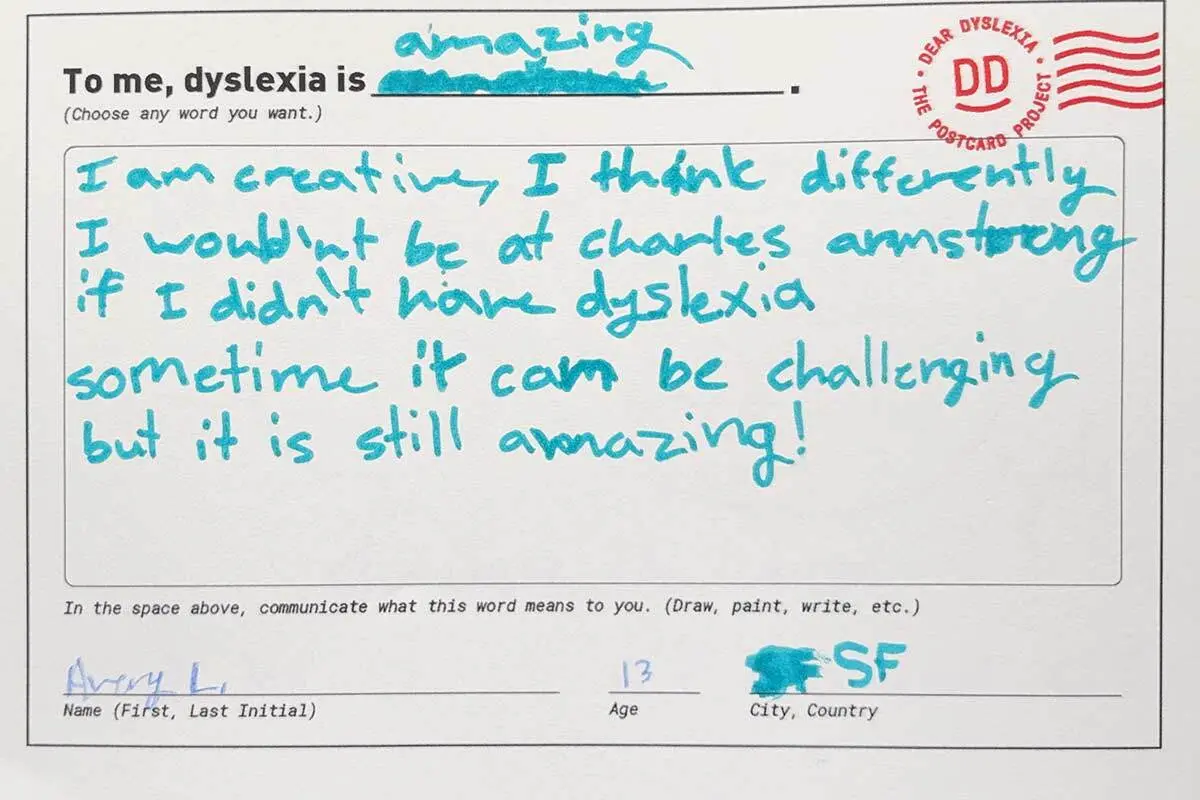 amazing
To me, dyslexia is .
(Choose any word you want.)
DEAR DYSLEXIA
DD
THE POSTCARD PROJECT
I am creative, I think differently
I would'nt be at charles armstrong
if I didn't have dyslexia
sometime it can be challenging
but it is still amazing!
In the space above, communicate what this word means to you. (Draw, paint, write, etc.)
Avery L. 13 SF
Name (First, Last Initial) Age City, Country